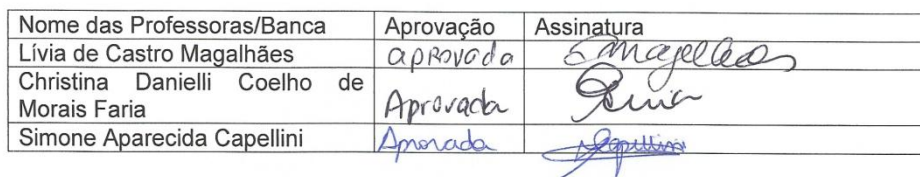 Nome das Professoras/Banca Aprovação Assinatura
Lívia de Castro Magalhães aprovada LMagalhães
Christina Danielli Coelho de
Morais Faria Aprovada Faria
Simone Aparecida Capellini Aprovada SCapellini